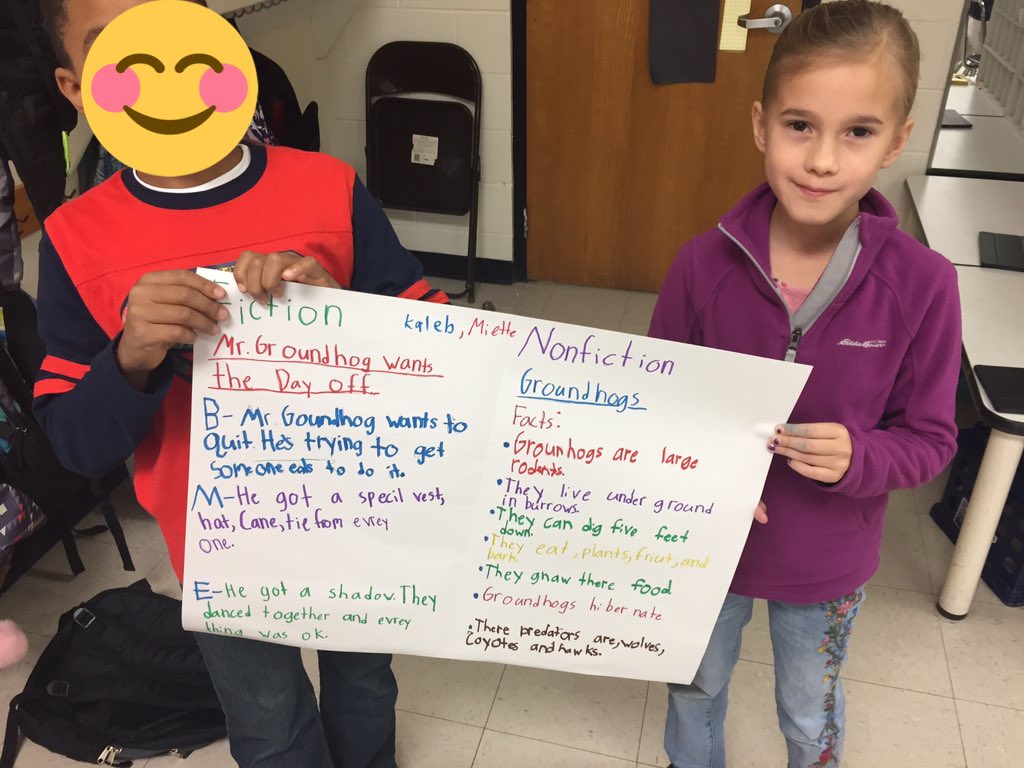 Fiction
Kaleb, Miette
Mr. Groundhog wants
the Day off.
B- Mr. Goundhog wants to
quit. He's trying to get
someone eals to do it.
M- He got a specil vest,
hat, Cane, tie from evrey
one.
E- He got a shadow. They
danced together and evrey
thing was ok.
Nonfiction
Groundhogs
Facts:
• Grounhogs are large
rodents.
• They live under ground
in burrows.
• They can dig five feet
down.
• They eat, plants, friut, and
bark.
• They gnaw there food.
• Groundhogs hibernate
• There predators are, wolves,
Coyotes and hawks.
Eddie Bauer